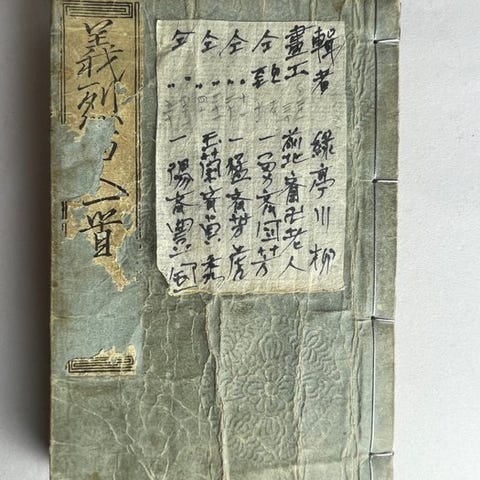 輯者 緑亭川柳
畫工 前北斎卍老人
仝 一勇斎国芳
仝 〃 一猛斎芳虎
仝 〃 玉蘭斎貞秀
仝 〃 一陽斎豊国
義烈 人一首